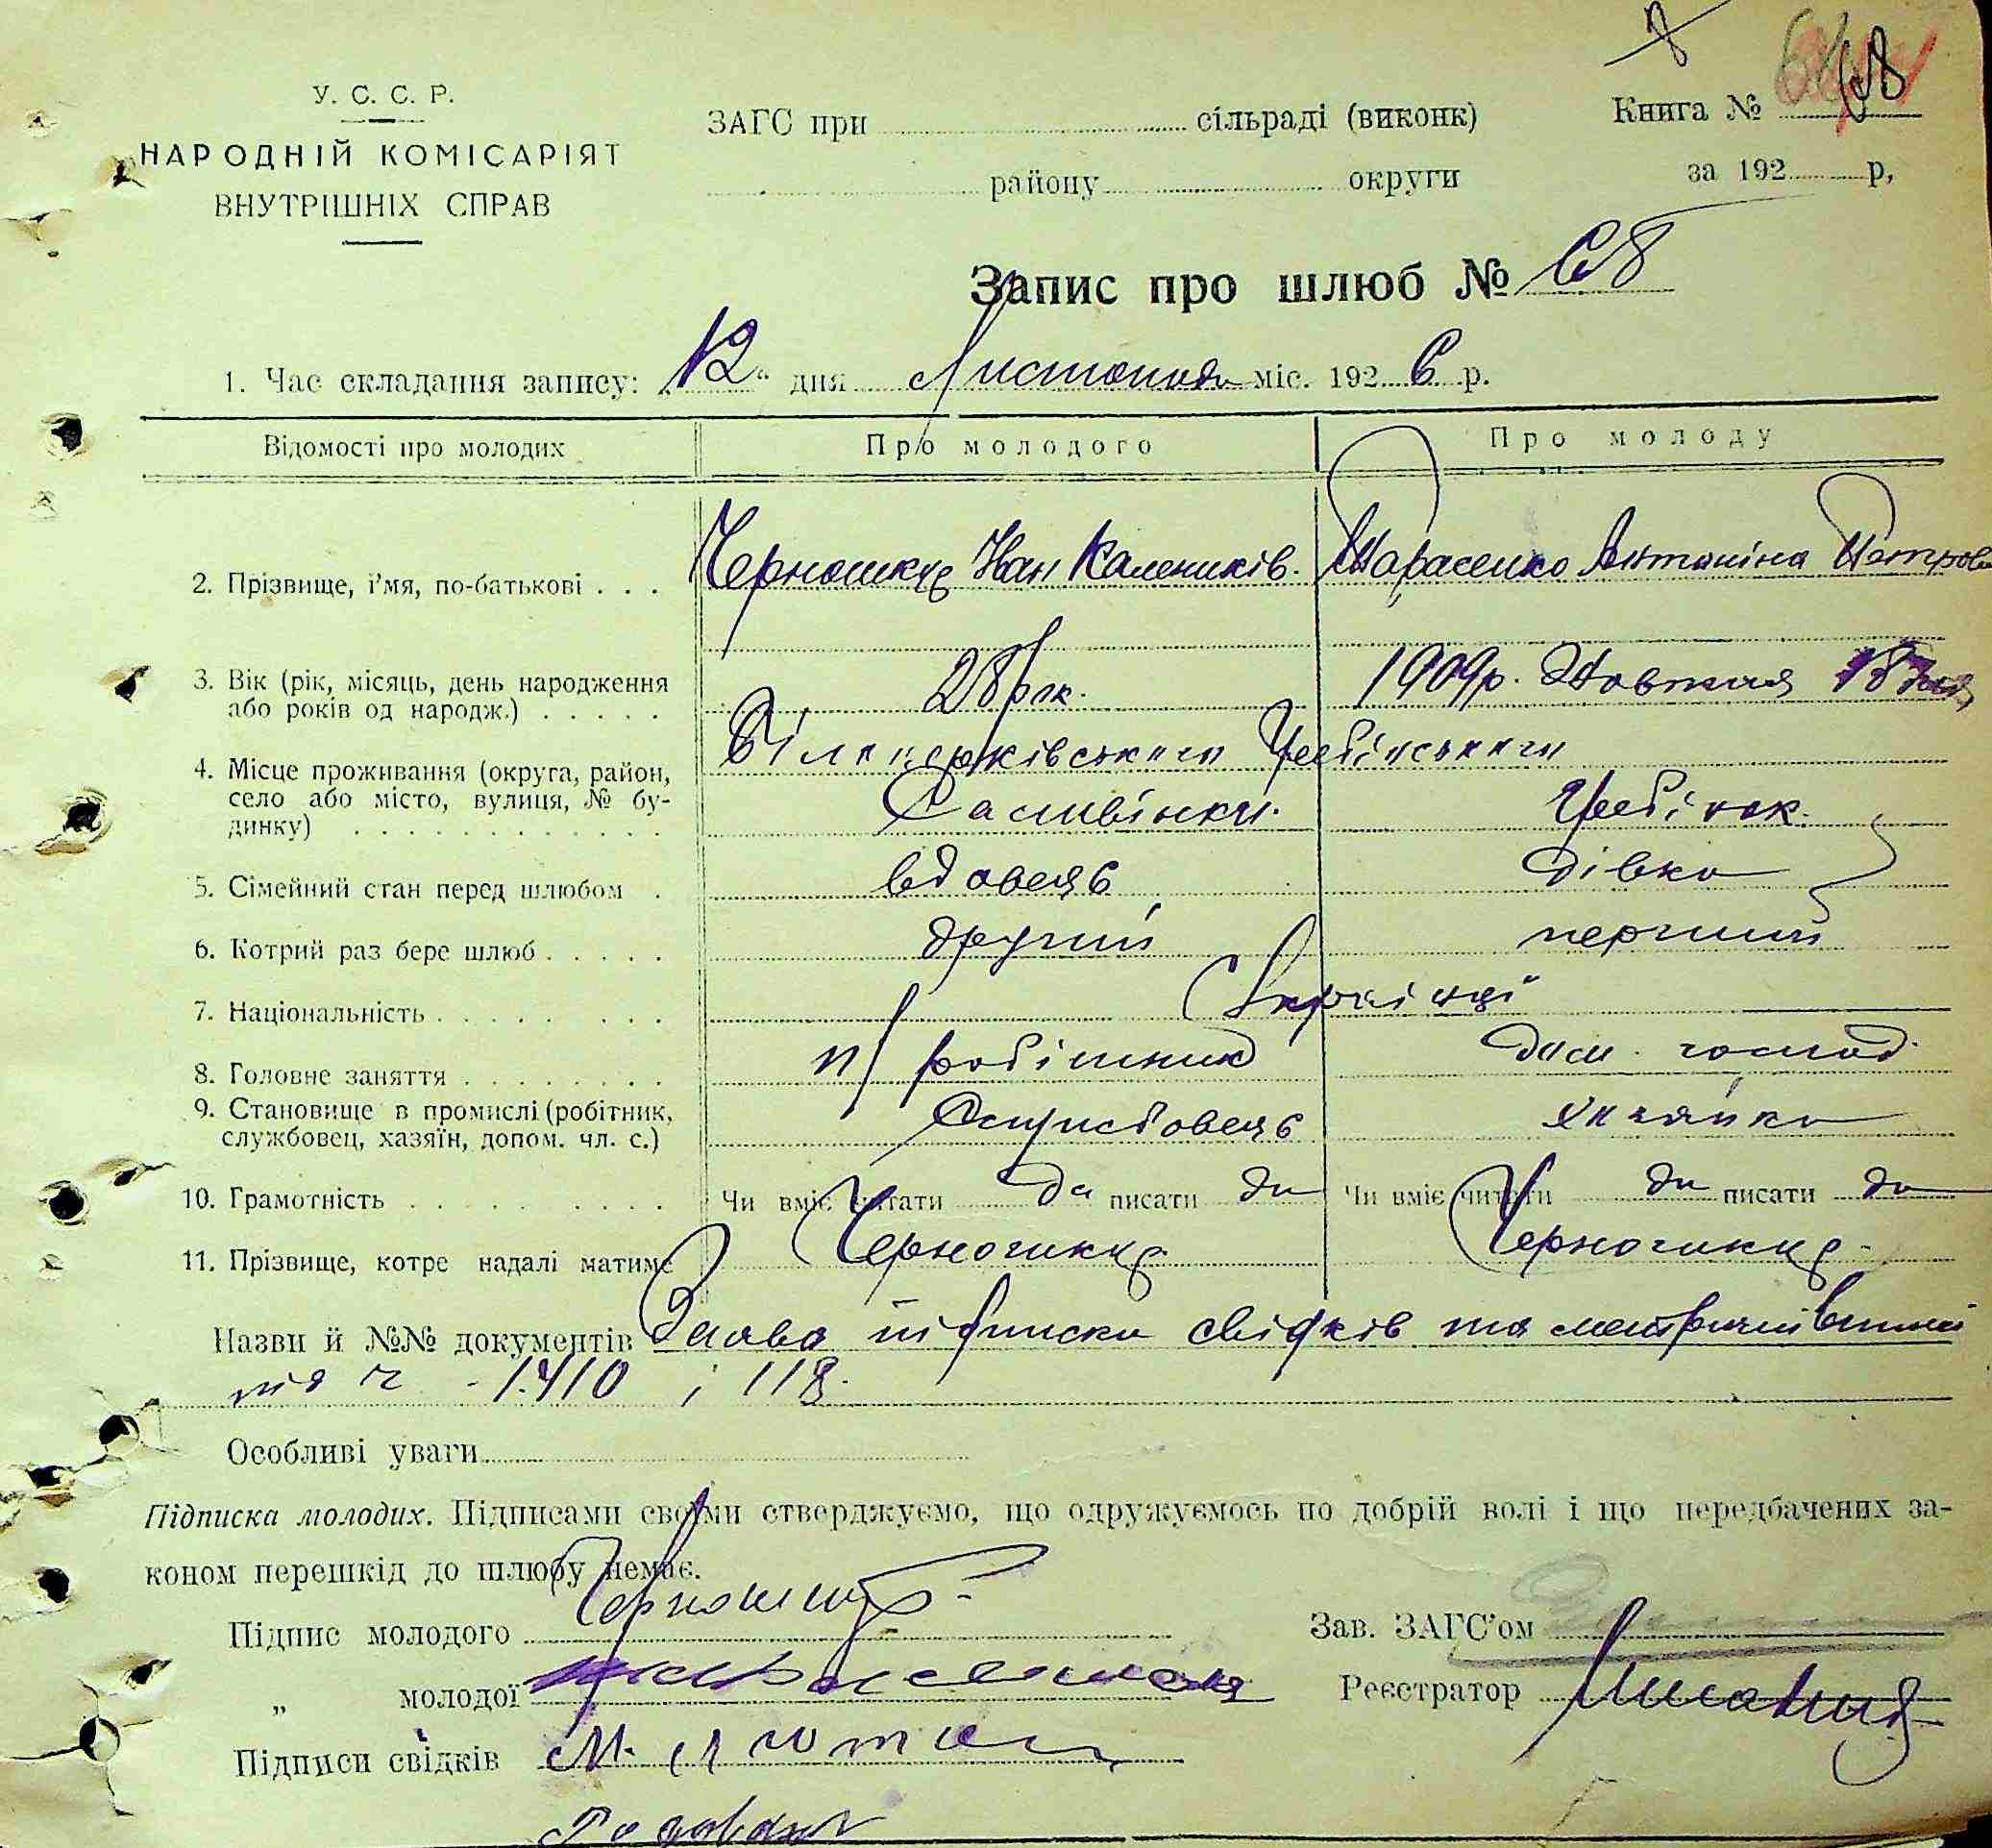 У. С. С. Р.
НАРОДНІЙ КОМІСАРІЯТ
ВНУТРІШНІХ СПРАВ
ЗАГС при сільраді (виконк)
району округи
Книга № 68
за 192 р,
Запис про шлюб № 68
1. Час складання запису: „12“ дня Листопада міс. 1926 р.
Відомості про молодих Про молодого Про молоду
2. Прізвище, і'мя, по-батькові . . . Іван Калеників. Тарасенко Антоніна Петров
3. Вік (рік, місяць, день народження
або років од народж.) . . . . . 28 рік. 1909р. Жовтня 18 дня
4. Місце проживання (округа, район,
село або місто, вулиця, № бу-
динку) . . . . . . . . . . . .
5. Сімейний стан перед шлюбом . вдовець дівка
6. Котрий раз бере шлюб . . . . . другий перший
7. Національність . . . . . . . . Українці
8. Головне заняття . . . . . . . . робітник дом. господ.
9. Становище в промислі (робітник,
службовец, хазяїн, допом. чл. с.) Службовець хазяйка
10. Грамотність . . . . . . . . . Чи вміє читати да писати да Чи вміє читати да писати да
11. Прізвище, котре надалі матиме
Назви й №№ документів Заява підписки свідків та метричні
під ч. 1410 і 118.
Особливі уваги
Підписка молодих. Підписами своїми стверджуємо, що одружуємось по добрій волі і що передбачених за-
коном перешкід до шлюбу немає.
Підпис молодого
Зав. ЗАГС'ом
„ молодої
Реєстратор
Підписи свідків